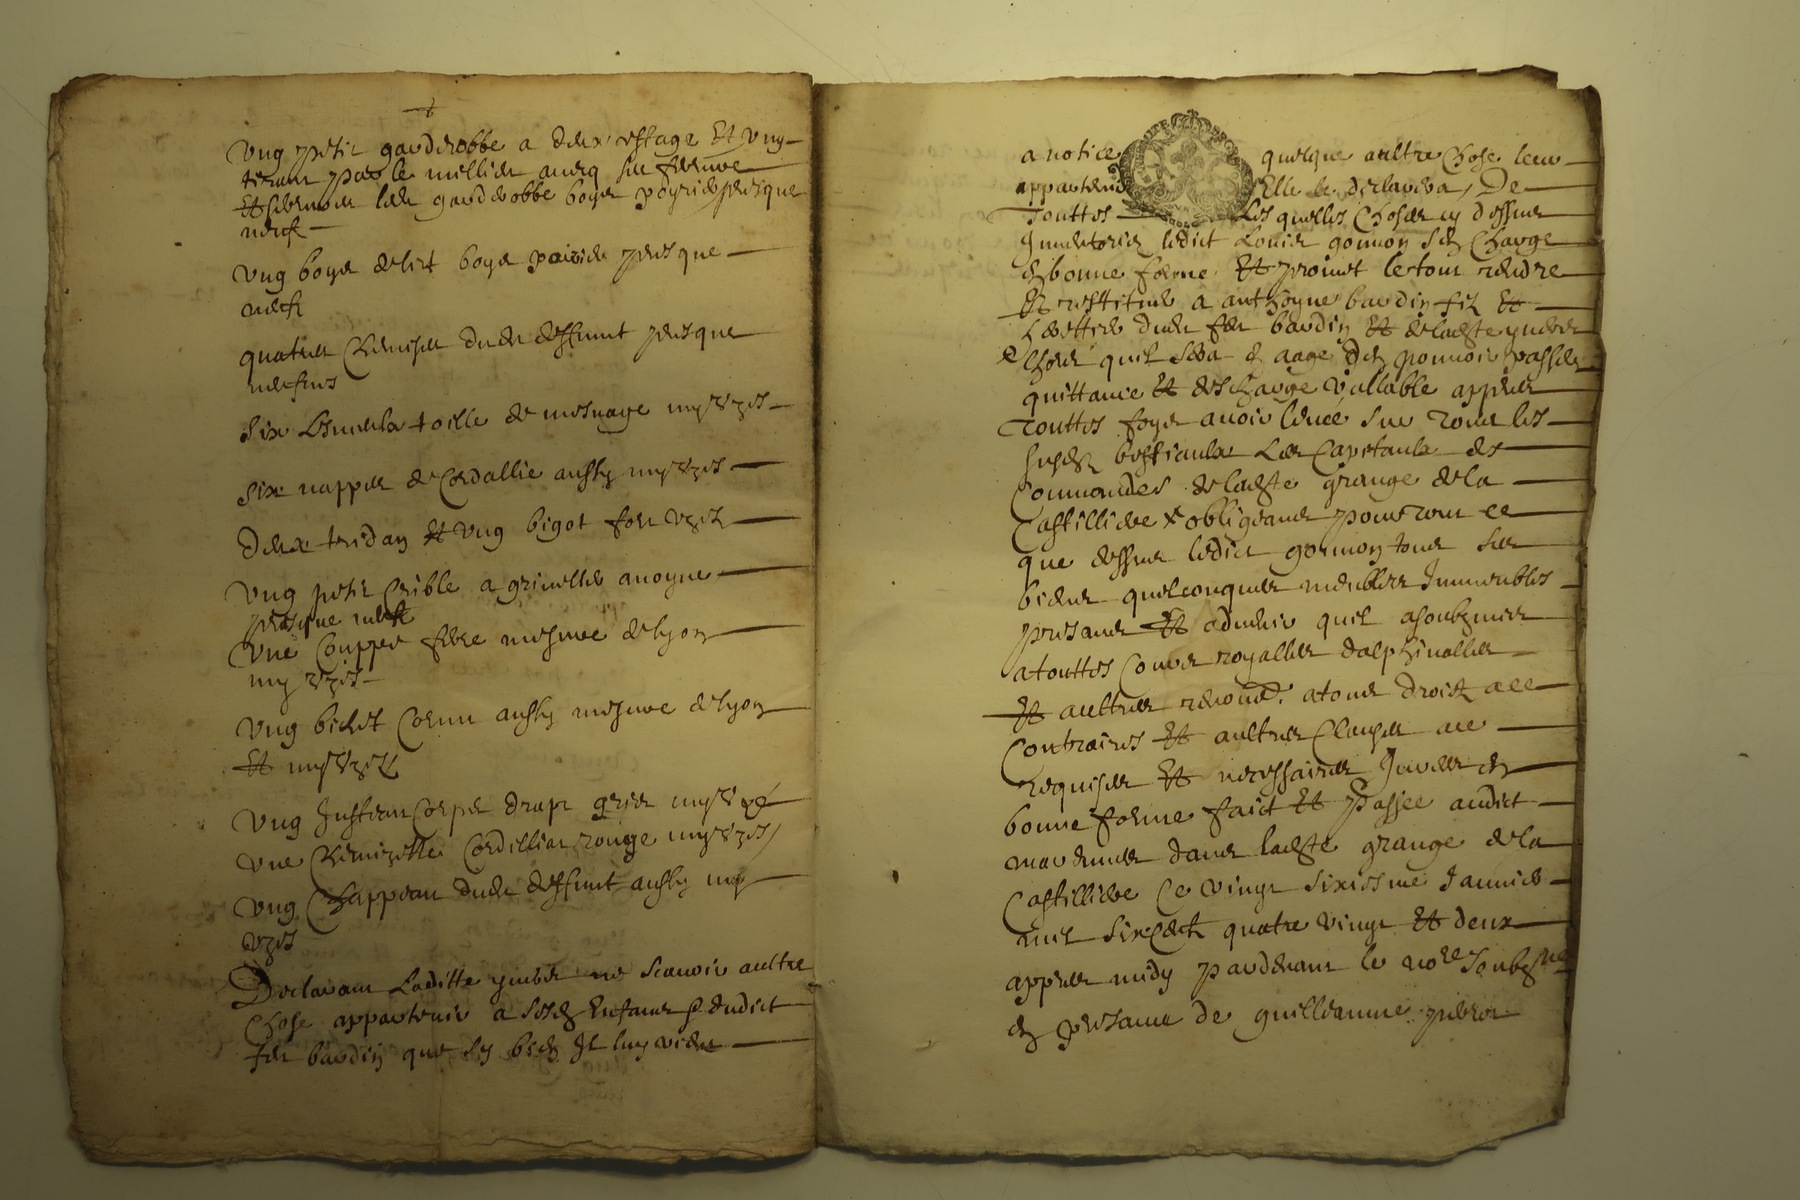 Ung petit garderobbe a deux estage Et ung
tirant par le millieu avecq sa ferrure
Et serrures led garderobbe boys poyrier presque
neufz
Ung boys de lict boys poirier presque
neufz
quatre Chemises dudit deffunt presque
neufves
Six toille de mesnage my uzes
Six nappes de Cordallie aussy my uzes
Deux tridan Et Ung bigot fort uzez
Ung petit Crible a
presque neuf
Une Couppe mesure de lyon
my uzes
Ung bichet Cornu aussy mesure de lyon
Et my uzez
Ung Justeaucorps drap gris my uzé
Une Chemizette Cordillat rouge my uzes
Ung Chappeau dudit deffunt aussy my
uzes
Declarant Laditte ne scavoir aultre
Chose appartenir a sesdz Enfants dudict
feu bardin que sy bien Il luy vient
a notice quelque aultre Chose leur
appartenir Elle le declarera, De
Touttes Lesquelles Choses cy dessus
Inventories ledict Louis gonnon s'en Charge
en bonne forme Et promet le tout rendre
Et restituer a anthoyne bardin filz Et
herettier dudit feu bardin Et de ladte
lhors quil sera en aage den pouvoir passer
quittance Et descharge vallable appres
Touttes foys avoir leve sur tous les
susdz bestiaulx Les Capitaulx des
Commandes de ladte grange de la
Castilliere obligeant pour tout ce
que dessus ledict gonnon tous ses
biens quelconques meubles Immeubles
presants Et advenir quil a soubzmis
a touttes Cours royalles dalphinalles
Et aultres renoncé. a tous droictz a ce
Contraires Et aultres Clauses a ce
requises Et necessaires Jures en
bonne forme faict Et Passee audict
dans ladte grange de la
Castilliere Ce vingt sixiesme Janvier
mil six Centz quatre vingt Et deux
appres midy pardevant le nore soubzne
en presance de guilleaume